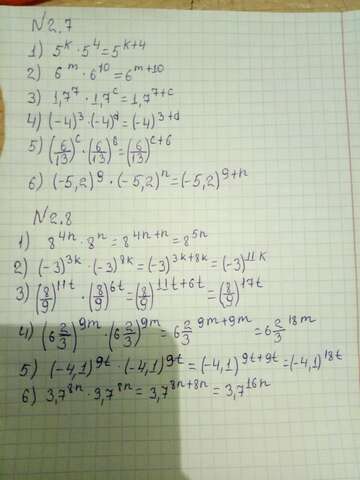 N2.7
1) 5^k · 5^4 = 5^(k+4)
2) 6^m · 6^10 = 6^(m+10)
3) 1,7^7 · 1,7^c = 1,7^(7+c)
4) (-4)^3 · (-4)^d = (-4)^(3+d)
5) (6/13)^c · (6/13)^6 = (6/13)^(c+6)
6) (-5,2)^9 · (-5,2)^n = (-5,2)^(9+n)
N2.8
1) 8^(4n) · 8^n = 8^(4n+n) = 8^(5n)
2) (-3)^(3k) · (-3)^(8k) = (-3)^(3k+8k) = (-3)^(11k)
3) (8/9)^(11t) · (8/9)^(6t) = (8/9)^(11t+6t) = (8/9)^(17t)
4) (6 2/3)^(9m) · (6 2/3)^(9m) = 6 2/3^(9m+9m) = 6 2/3^(18m)
5) (-4,1)^(9t) · (-4,1)^(9t) = (-4,1)^(9t+9t) = (-4,1)^(18t)
6) 3,7^(8n) · 3,7^(8n) = 3,7^(8n+8n) = 3,7^(16n)